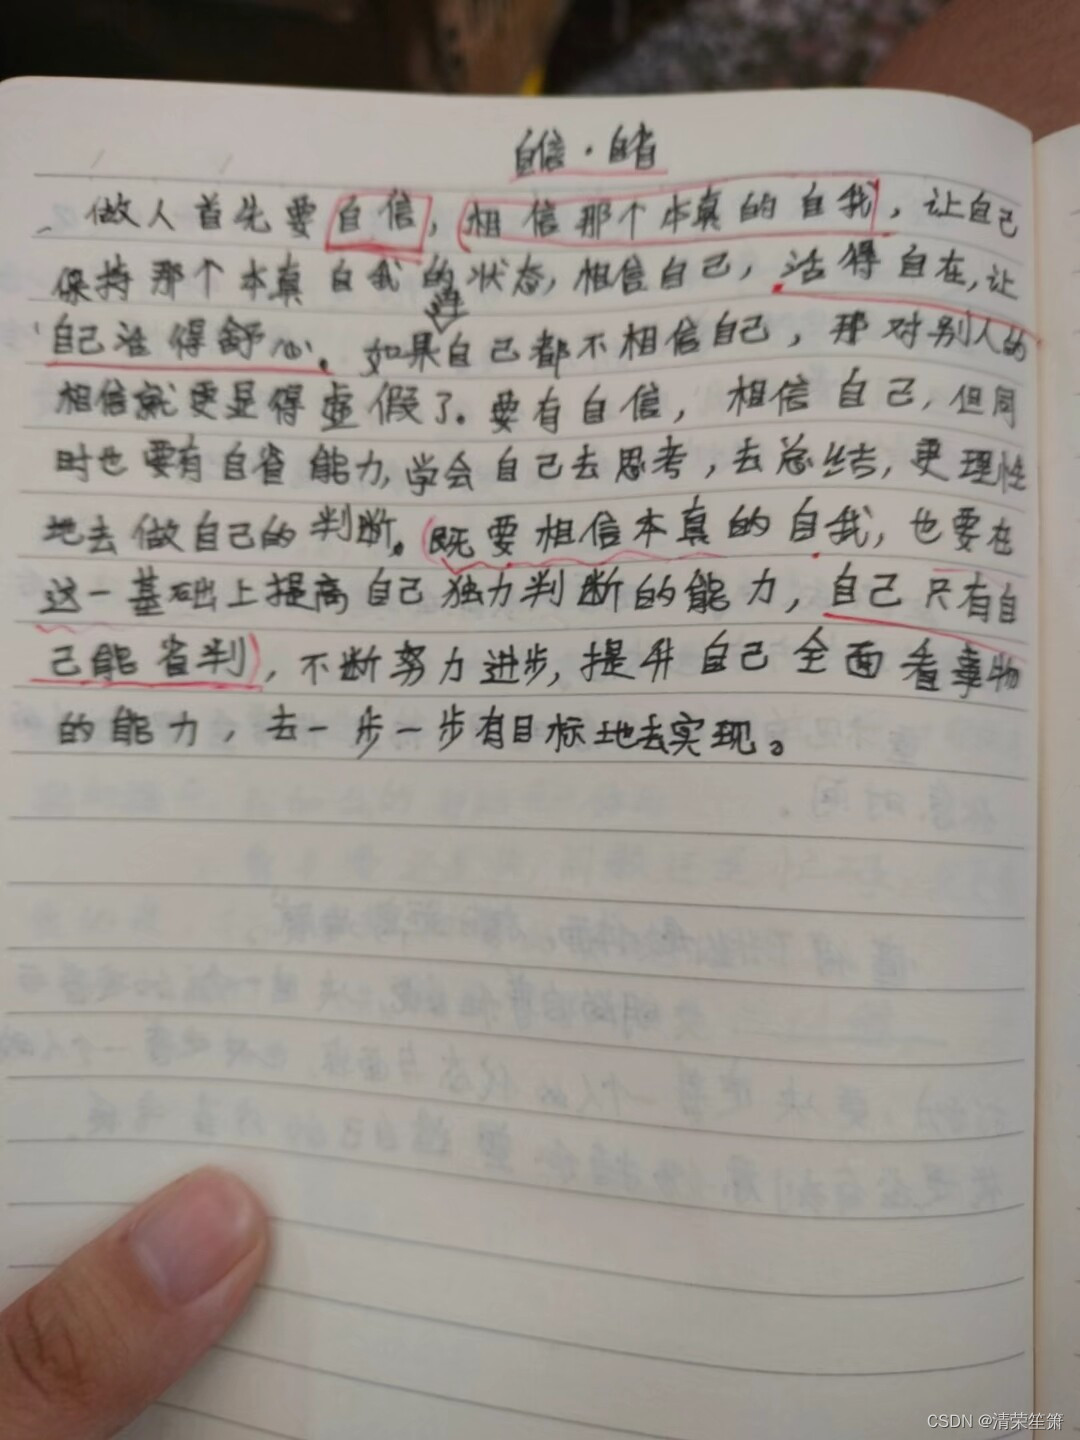 自信·自省
做人首先要自信，相信那个本真的自我，让自己
保持那个本真自我的状态，相信自己，活得自在，让
自己活得舒心。如果自己都不相信自己，那对别人的
相信就更显得虚假了。要有自信，相信自己，但同
时也要有自省能力，学会自己去思考，去总结，更理性
地去做自己的判断。（既要相信本真的自我，也要在
这一基础上提高自己独力判断的能力，自己只有自
己能省判），不断努力进步，提升自己全面看事物
的能力，去一步一步有目标地去实现。
CSDN @清荣笙箫